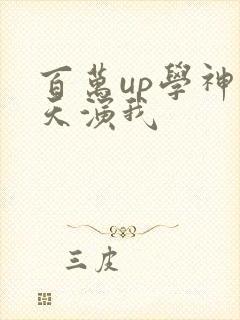 百萬up學神
天演我
三皮